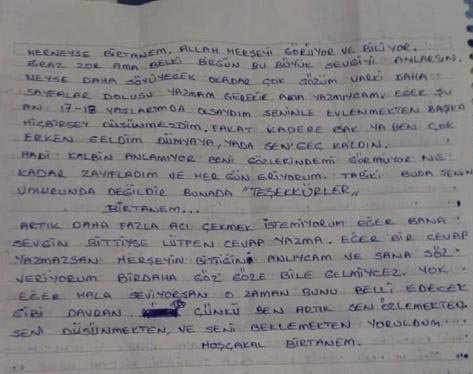 HERNEYSE BİRTANEM, ALLAH HERŞEYİ GÖRÜYOR VE BİLİYOR.
BİRAZ ZOR AMA BELKİ BİRGÜN BU BÖYÜK SEVGİYİ ANLARSIN.
NEYSE DAHA SÖYLÜYECEK OKADAR ÇOK SÖZÜM VARKİ DAHA
SAYFALAR DOLUSU YAZMAM GEREKİR AMA YAZMIYCAM. EĞER ŞU
AN 17-18 YAŞLARIMDA OLSAYDIM SENİNLE EVLENMEKTEN BAŞKA
HİÇBİRŞEY DÜŞÜNMEZDİM. FAKAT KADERE BAK YA BEN ÇOK
ERKEN GELDİM DÜNYAYA, YADA SEN GEÇ KALDIN.
HADİ KALBİN ANLAMIYOR BENİ GÖZLERİNDEMİ GÖRMÜYOR NE
KADAR ZAYIFLADIM VE HER GÜN ERİYORUM. TABİKİ BUDA SENİN
UMURUNDA DEĞİLDİR BUNADA "TEŞEKKÜRLER,,
BİRTANEM...
ARTIK DAHA FAZLA ACI ÇEKMEK İSTEMİYORUM EĞER BANA
SEVGİN BİTTİYSE LÜTFEN CEVAP YAZMA. EĞER BİR CEVAP
YAZMAZSAN HERŞEYİN BİTTİĞİNİ ANLIYCAM VE SANA SÖZ
VERİYORUM BİRDAHA GÖZ GÖZE BİLE GELMİYCEZ. YOK
EĞER HALA SEVİYORSAN O ZAMAN BUNU BELLİ EDECEK
GİBİ DAVRAN ÇÜNKÜ BEN ARTIK SENİ ÖZLEMEKTEN,
SENİ DÜŞÜNMEKTEN, VE SENİ BEKLEMEKTEN YORULDUM
HOŞÇAKAL BİRTANEM.